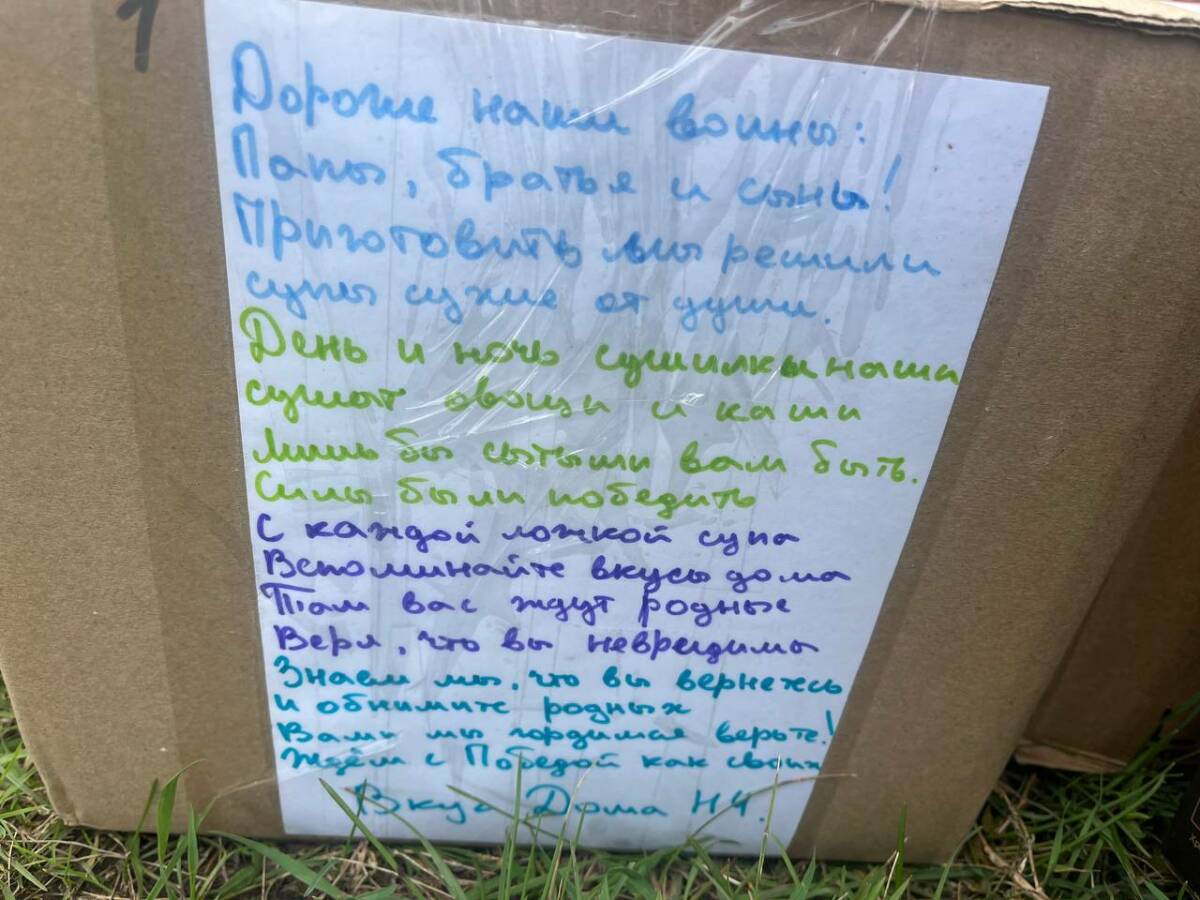 1
Дорогие наши воины:
Папы, братья и сыны!
Приготовить мы решили
супы сухие от души.
День и ночь сушилки наши
сушат овощи и каши
лишь бы сытыми вам быть.
Силы были победить
С каждой ложкой супа
Вспоминайте вкусы дома
Там вас ждут родные
Веря, что вы невредимы
Знаем мы, что вы вернетесь
и обнимите родных
Вами мы гордимся верьте!
Ждём с Победой как своих
Вкус Дома НЧ.